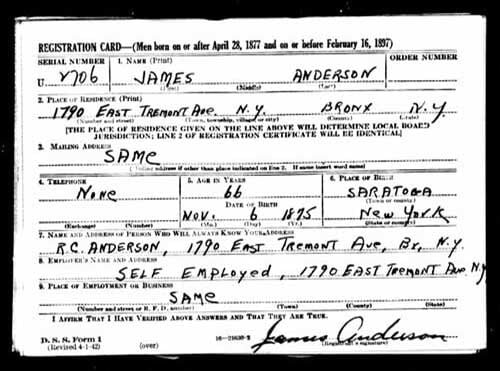 REGISTRATION CARD—(Men born on or after April 28, 1877 and on or before February 16, 1897)
SERIAL NUMBER 1. NAME (Print) ORDER NUMBER
U 2706 JAMES ANDERSON
(First) (Middle) (Last)
2. PLACE OF RESIDENCE (Print)
1790 EAST TREMONT Ave N.Y. BRONX N.Y.
(Number and street) (Town, township, village, or city) (County) (State)
[THE PLACE OF RESIDENCE GIVEN ON THE LINE ABOVE WILL DETERMINE LOCAL BOARD
JURISDICTION; LINE 2 OF REGISTRATION CERTIFICATE WILL BE IDENTICAL]
3. MAILING ADDRESS
SAME
(Mailing address if other than place indicated on line 2. If same insert word same)
4. TELEPHONE 5. AGE IN YEARS 6. PLACE OF BIRTH
NONE 66 SARATOGA
DATE OF BIRTH (Town or county)
NOV. 6 1875 NEW YORK
(Exchange) (Number) (Mo.) (Day) (Yr.) (State or country)
7. NAME AND ADDRESS OF PERSON WHO WILL ALWAYS KNOW YOUR ADDRESS
R.C. ANDERSON, 1790 EAST TREMONT Ave, Bx, N.Y.
8. EMPLOYER'S NAME AND ADDRESS
SELF EMPLOYED, 1790 EAST TREMONT Ave. N.Y.
9. PLACE OF EMPLOYMENT OR BUSINESS
SAME
(Number and street or R. F. D. number) (Town) (County) (State)
I AFFIRM THAT I HAVE VERIFIED ABOVE ANSWERS AND THAT THEY ARE TRUE.
D. S. S. Form 1 James Anderson
(Revised 4-1-42) (over) 16—21630-2 (Registrant's signature)